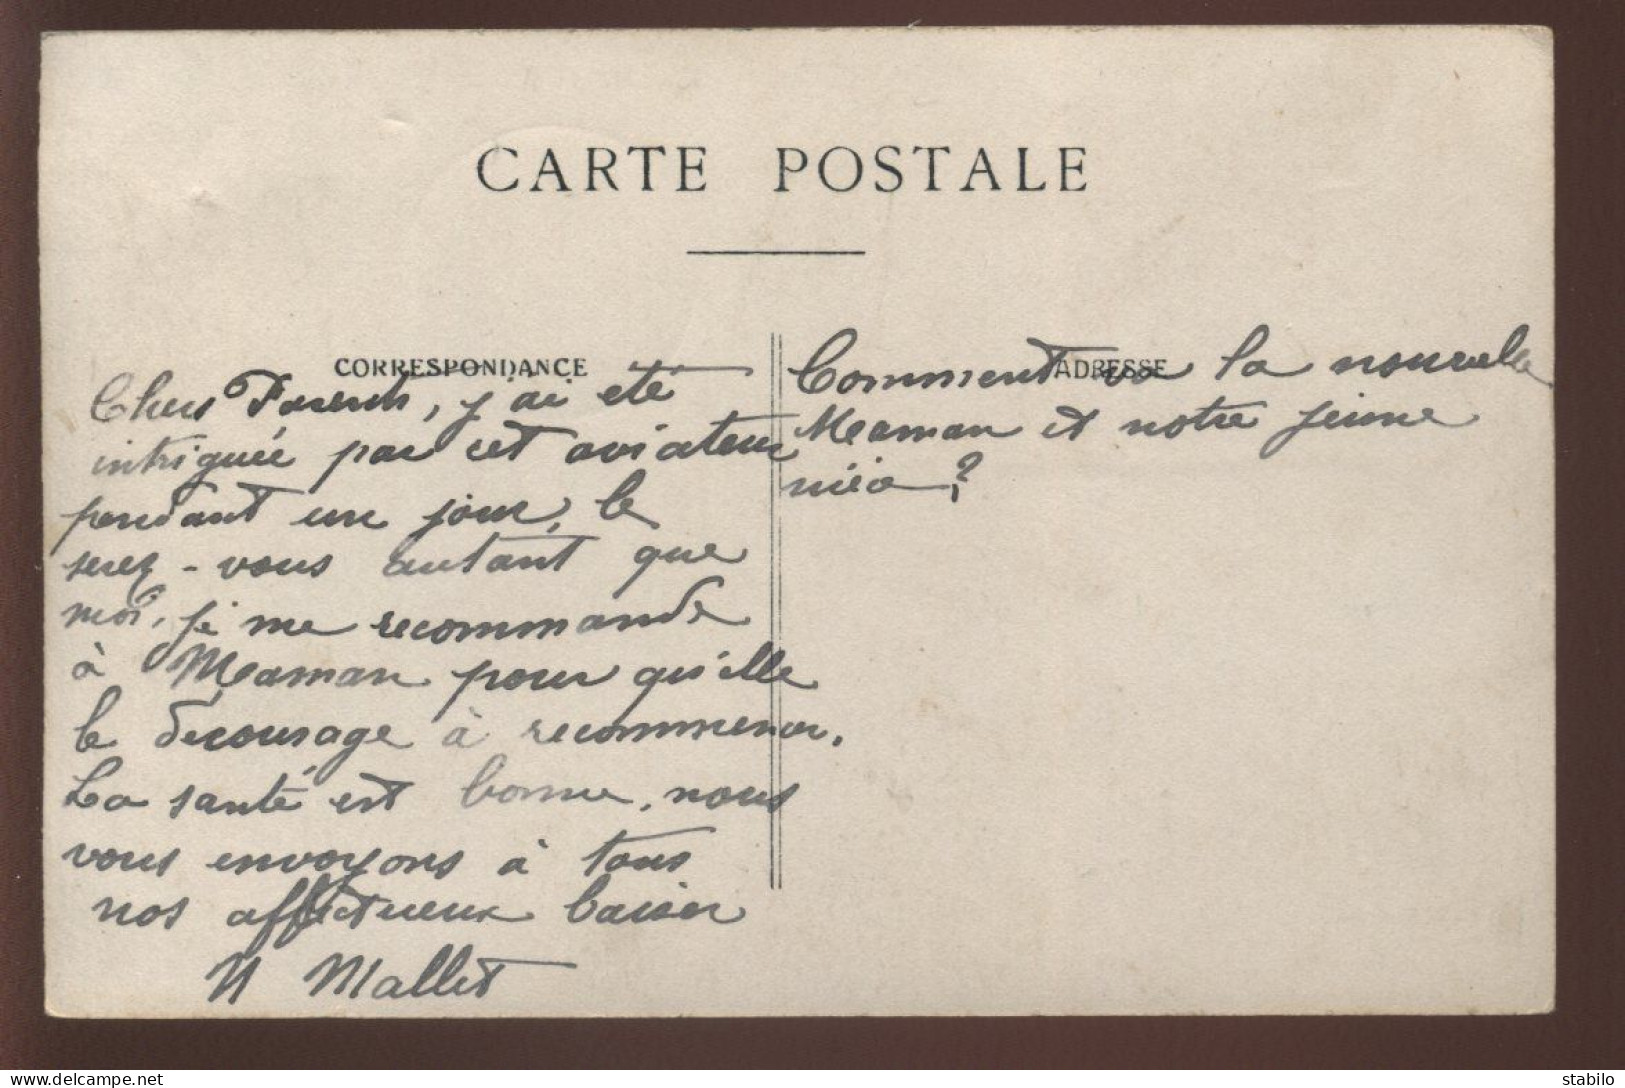 CARTE POSTALE
CORRESPONDANCE
Chers Parents, j'ai été
intriguée par cet aviateur
pendant un jour, le
serez-vous autant que
moi, je me recommande
à Maman pour qu'elle
le décourage à recommencer.
La santé est bonne, nous
vous envoyons à tous
nos affectueux baiser
N Mallet
ADRESSE
Comment va la nouvelle
Maman et notre jeune
nièce?
stabilo